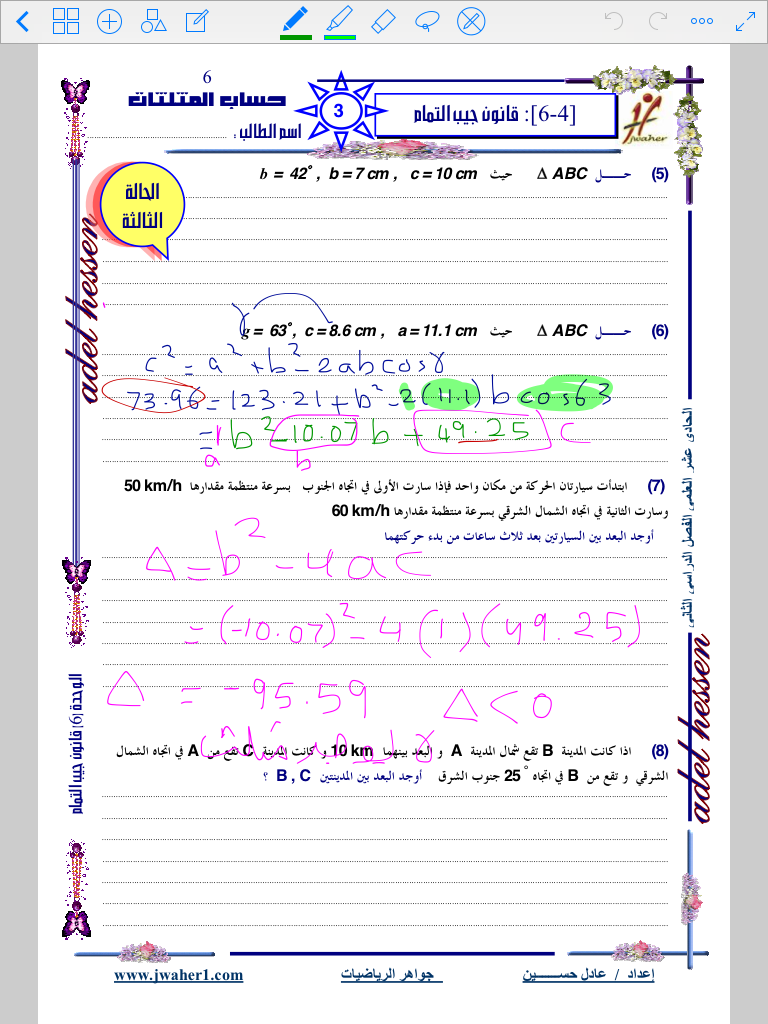 6
حساب المثلثات
3
[6-4]: قانون جيب التمام
jwaher
اسم الطالب :
الحالة الثالثة
(5) حــــل Δ ABC حيث b = 42° , b = 7 cm , c = 10 cm
(6) حــــل Δ ABC حيث g = 63°, c = 8.6 cm , a = 11.1 cm
c² = a² + b² - 2ab cos γ
73.96 = 123.21 + b² - 2(11.1) b cos63
= 1b² - 10.07 b + 49.25 c
a b
(7) ابتدأت سيارتان الحركة من مكان واحد فإذا سارت الأولى في اتجاه الجنوب بسرعة منتظمة مقدارها 50 km/h
وسارت الثانية في اتجاه الشمال الشرقي بسرعة منتظمة مقدارها 60 km/h
أوجد البعد بين السيارتين بعد ثلاث ساعات من بدء حركتهما
Δ = b² - 4ac
= (-10.07)² - 4(1)(49.25)
Δ = -95.59 Δ < 0
لا يوجد مثلث
(8) اذا كانت المدينة B تقع شمال المدينة A و البعد بينهما 10 km و كانت المدينة C تقع من A في اتجاه الشمال
الشرقي و تقع من B في اتجاه 25° جنوب الشرق أوجد البعد بين المدينتين B , C ؟
adel hessen
adel hessen
الحادى عشر العلمى الفصل الدراسى الثانى
الوحدة {6} قانون جيب التمام
إعداد / عادل حســـــين
جواهر الرياضيات
www.jwaher1.com